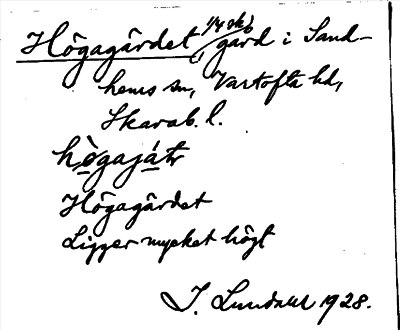 Högagärdet, 1/4 skt gård i Sand-
hems sn, Vartofta hd,
Skarab. l.
hògajátr
Högagärdet
Ligger mycket högt
I. Lundahl 1928.